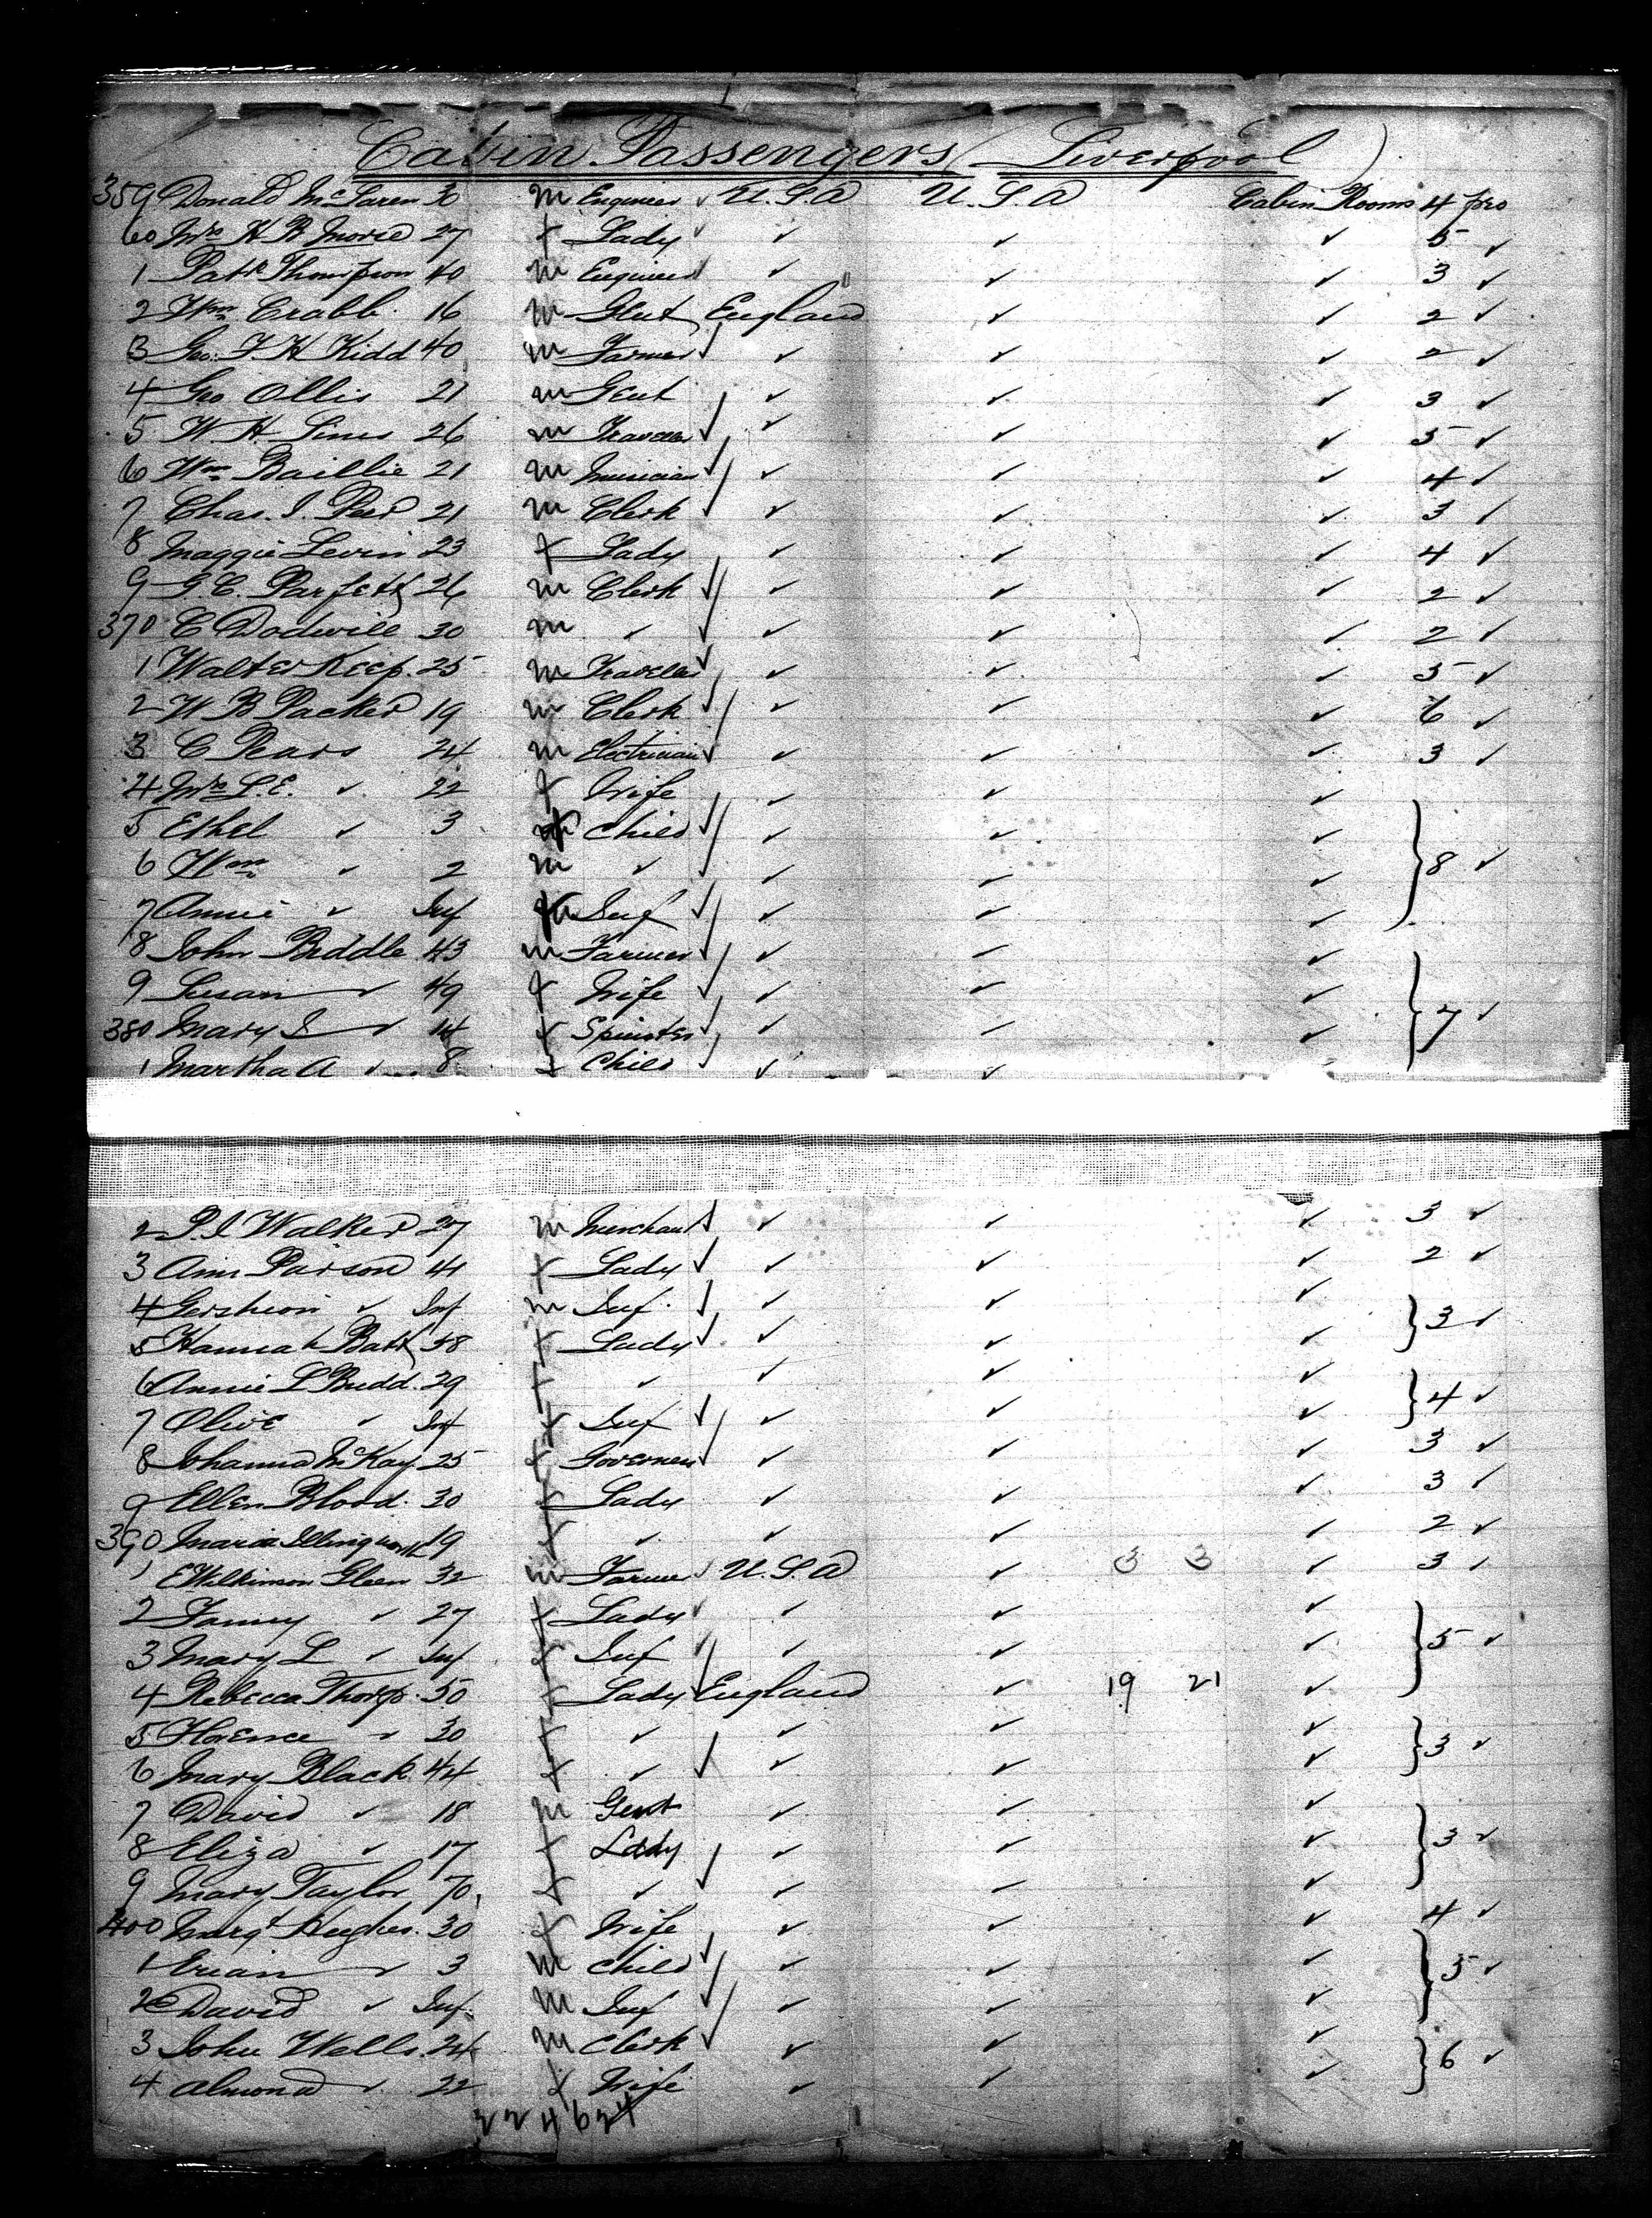 Cabin Passengers (Liverpool)
359 Donald McLaren 30 m Engineer ✓ U.S.A U.S.A Cabin Rooms 4 pro
60 Mrs H B Morse 27 f Lady ✓ ✓ ✓ ✓ 5 ✓
1 Patk Thompson 40 m Engineer ✓ ✓ ✓ 3 ✓
2 Wm Crabb 16 m Gent England ✓ ✓ 2 ✓
3 Geo. F. H Kidd 40 m Farmer ✓ ✓ ✓ ✓ 2 ✓
4 Geo Ollis 21 m Gent ✓ ✓ ✓ 3 ✓
5 W. H. Sims 26 m Traveller ✓ ✓ ✓ ✓ 5 ✓
6 Wm Baillie 21 m Musician ✓ ✓ ✓ ✓ 4 ✓
7 Chas. I. 21 m Clerk ✓ ✓ ✓ ✓ 3 ✓
8 Maggie Levin 23 f Lady ✓ ✓ ✓ 4 ✓
9 G. C. Parfett 26 m Clerk ✓ ✓ ✓ ✓ 2 ✓
370 C Dodwill 30 m ✓ ✓ ✓ ✓ ✓ 2 ✓
1 Walter Keep 25 m Traveller ✓ ✓ ✓ ✓ 5 ✓
2 W B Packer 19 m Clerk ✓ ✓ ✓ ✓ 6 ✓
3 C Pears 24 m Electrician ✓ ✓ ✓ ✓ 3 ✓
4 Mrs L.E. ✓ 22 f Wife ✓ ✓ ✓
5 Ethel ✓ 3 f Child ✓ ✓ ✓ ✓
6 Wm ✓ 2 m ✓ ✓ ✓ ✓ } 8 ✓
7 Annie ✓ Inf f Inf ✓ ✓ ✓ ✓
8 John Biddle 43 m Farmer ✓ ✓ ✓ ✓
9 Susan ✓ 49 f Wife ✓ ✓ ✓ ✓
380 Mary J ✓ 14 f Spinster ✓ ✓ ✓ ✓ } 7 ✓
1 Martha A ✓ 8 f Child ✓ ✓ ✓
2 P. I Walker 27 m Merchant ✓ ✓ ✓ ✓ 3 ✓
3 Ann Parson 41 f Lady ✓ ✓ ✓ ✓ 2 ✓
4 Gershion ✓ Inf m Inf. ✓ ✓ ✓ ✓ } 3 ✓
5 Hannah Batt 58 f Lady ✓ ✓ ✓ ✓
6 Annie L Budd 29 f ✓ ✓ ✓ } 4 ✓
7 Olive ✓ Inf f Inf ✓ ✓ ✓ ✓
8 Johanna McKay 25 f Governess ✓ ✓ ✓ ✓ 3 ✓
9 Ellen Blood 30 f Lady ✓ ✓ ✓ 3 ✓
390 Maria Illingworth 19 f ✓ ✓ ✓ ✓ 2 ✓
1 E Wilkinson Gleen 32 m Farmer ✓ U.S.A ✓ 3 3 ✓ 3 ✓
2 Fanny ✓ 27 f Lady ✓ ✓ ✓ ✓
3 Mary L ✓ Inf f Inf ✓ ✓ ✓ ✓ } 5 ✓
4 Rebecca Thorp 50 f Lady England ✓ 19 21 ✓
5 Florence ✓ 30 f ✓ ✓ ✓ ✓ } 3 ✓
6 Mary Black 44 f ✓ ✓ ✓ ✓ ✓
7 David ✓ 18 m Gent ✓ ✓ ✓
8 Eliza ✓ 17 f Lady ✓ ✓ ✓ } 3 ✓
9 Mary Taylor 70 f ✓ ✓ ✓ ✓ ✓
400 Margt Hughes 30 f Wife ✓ ✓ ✓ 4 ✓
1 ✓ 3 m Child ✓ ✓ ✓ ✓ } 5 ✓
2 David ✓ Inf m Inf ✓ ✓ ✓ ✓
3 John Wells 24 m Clerk ✓ ✓ ✓ ✓ } 6 ✓
4 ✓ 22 f Wife ✓ ✓ ✓